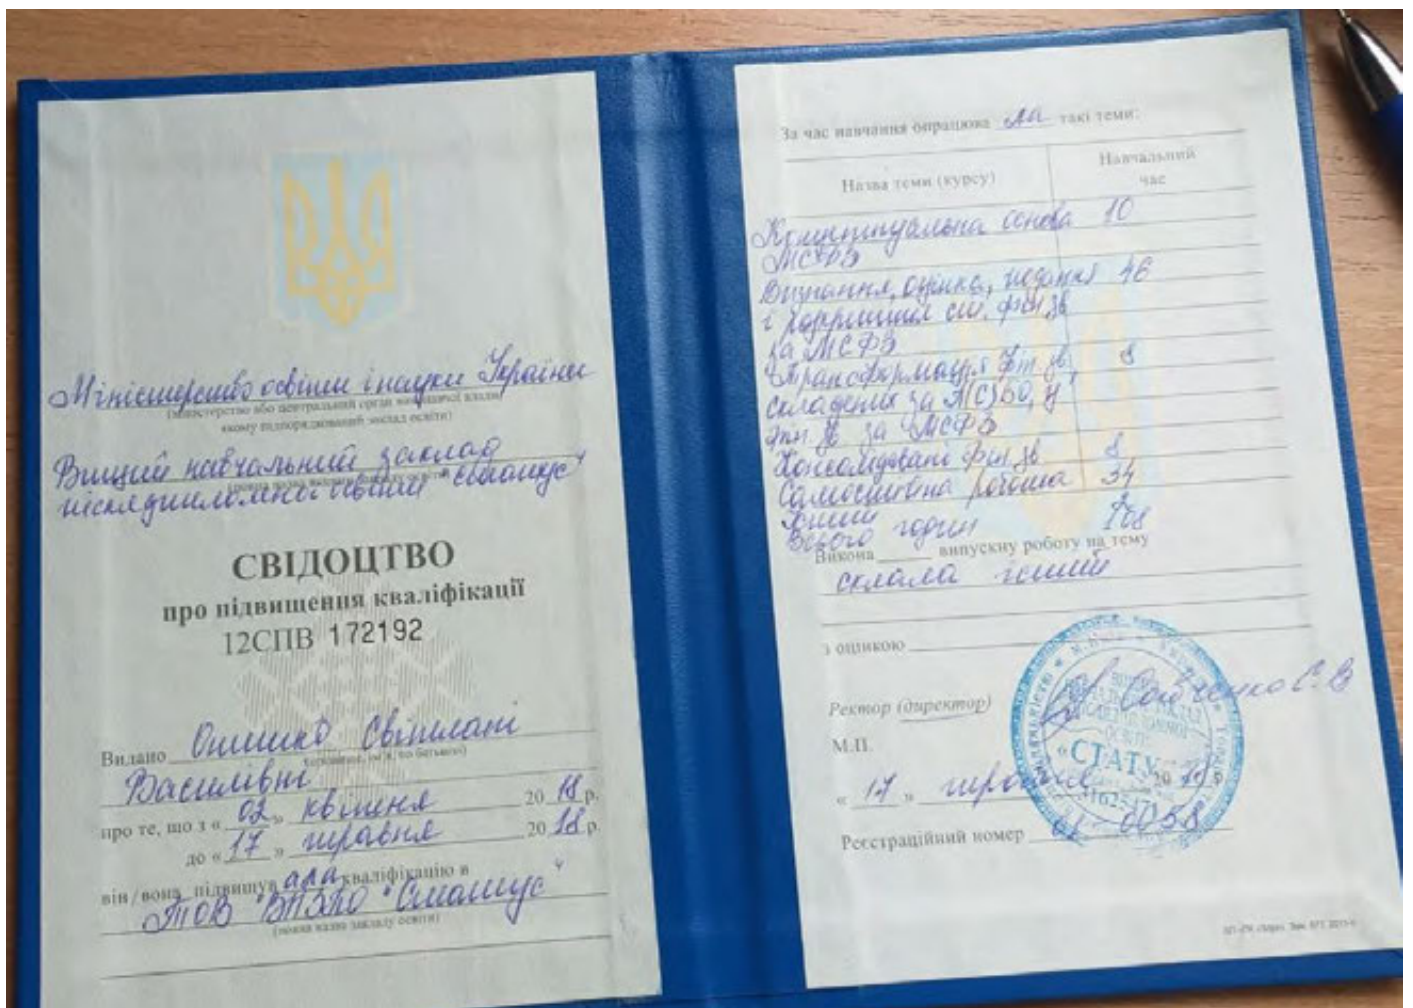 Міністерство освіти і науки України
(міністерство або центральний орган виконавчої влади,
якому підпорядкований заклад освіти)
Вищий навчальний заклад
(повна назва закладу освіти)
післядипломної освіти "Статус"
СВІДОЦТВО
про підвищення кваліфікації
12СПВ 172192
Видано Онишко Світлані
(прізвище, ім'я, по батькові)
Василівні
про те, що з « 02 » квітня 20 18 р.
до « 17 » травня 20 18 р.
він/вона підвищував ала кваліфікацію в
ТОВ "ВНЗПО "Статус"
(повна назва закладу освіти)
За час навчання опрацюва ла такі теми:
Назва теми (курсу) Навчальний час
Концептуальна основа 10
МСФЗ
Визнання, оцінка, подання 46
і розкриття ел. фін. зв
за МСФЗ
Трансформація фін. зв, 8
складених за П(С)БО, у
фін. зв за МСФЗ
Консолідовані фін. зв 8
Самостійна робота 34
Іспит 2
Всього годин 108
Викона випускну роботу на тему
склала іспит
з оцінкою
Ректор (директор) Савченко С.В
М.П.
« 17 » травня 20 18 р.
Реєстраційний номер 01-0058
«СТАТУС»